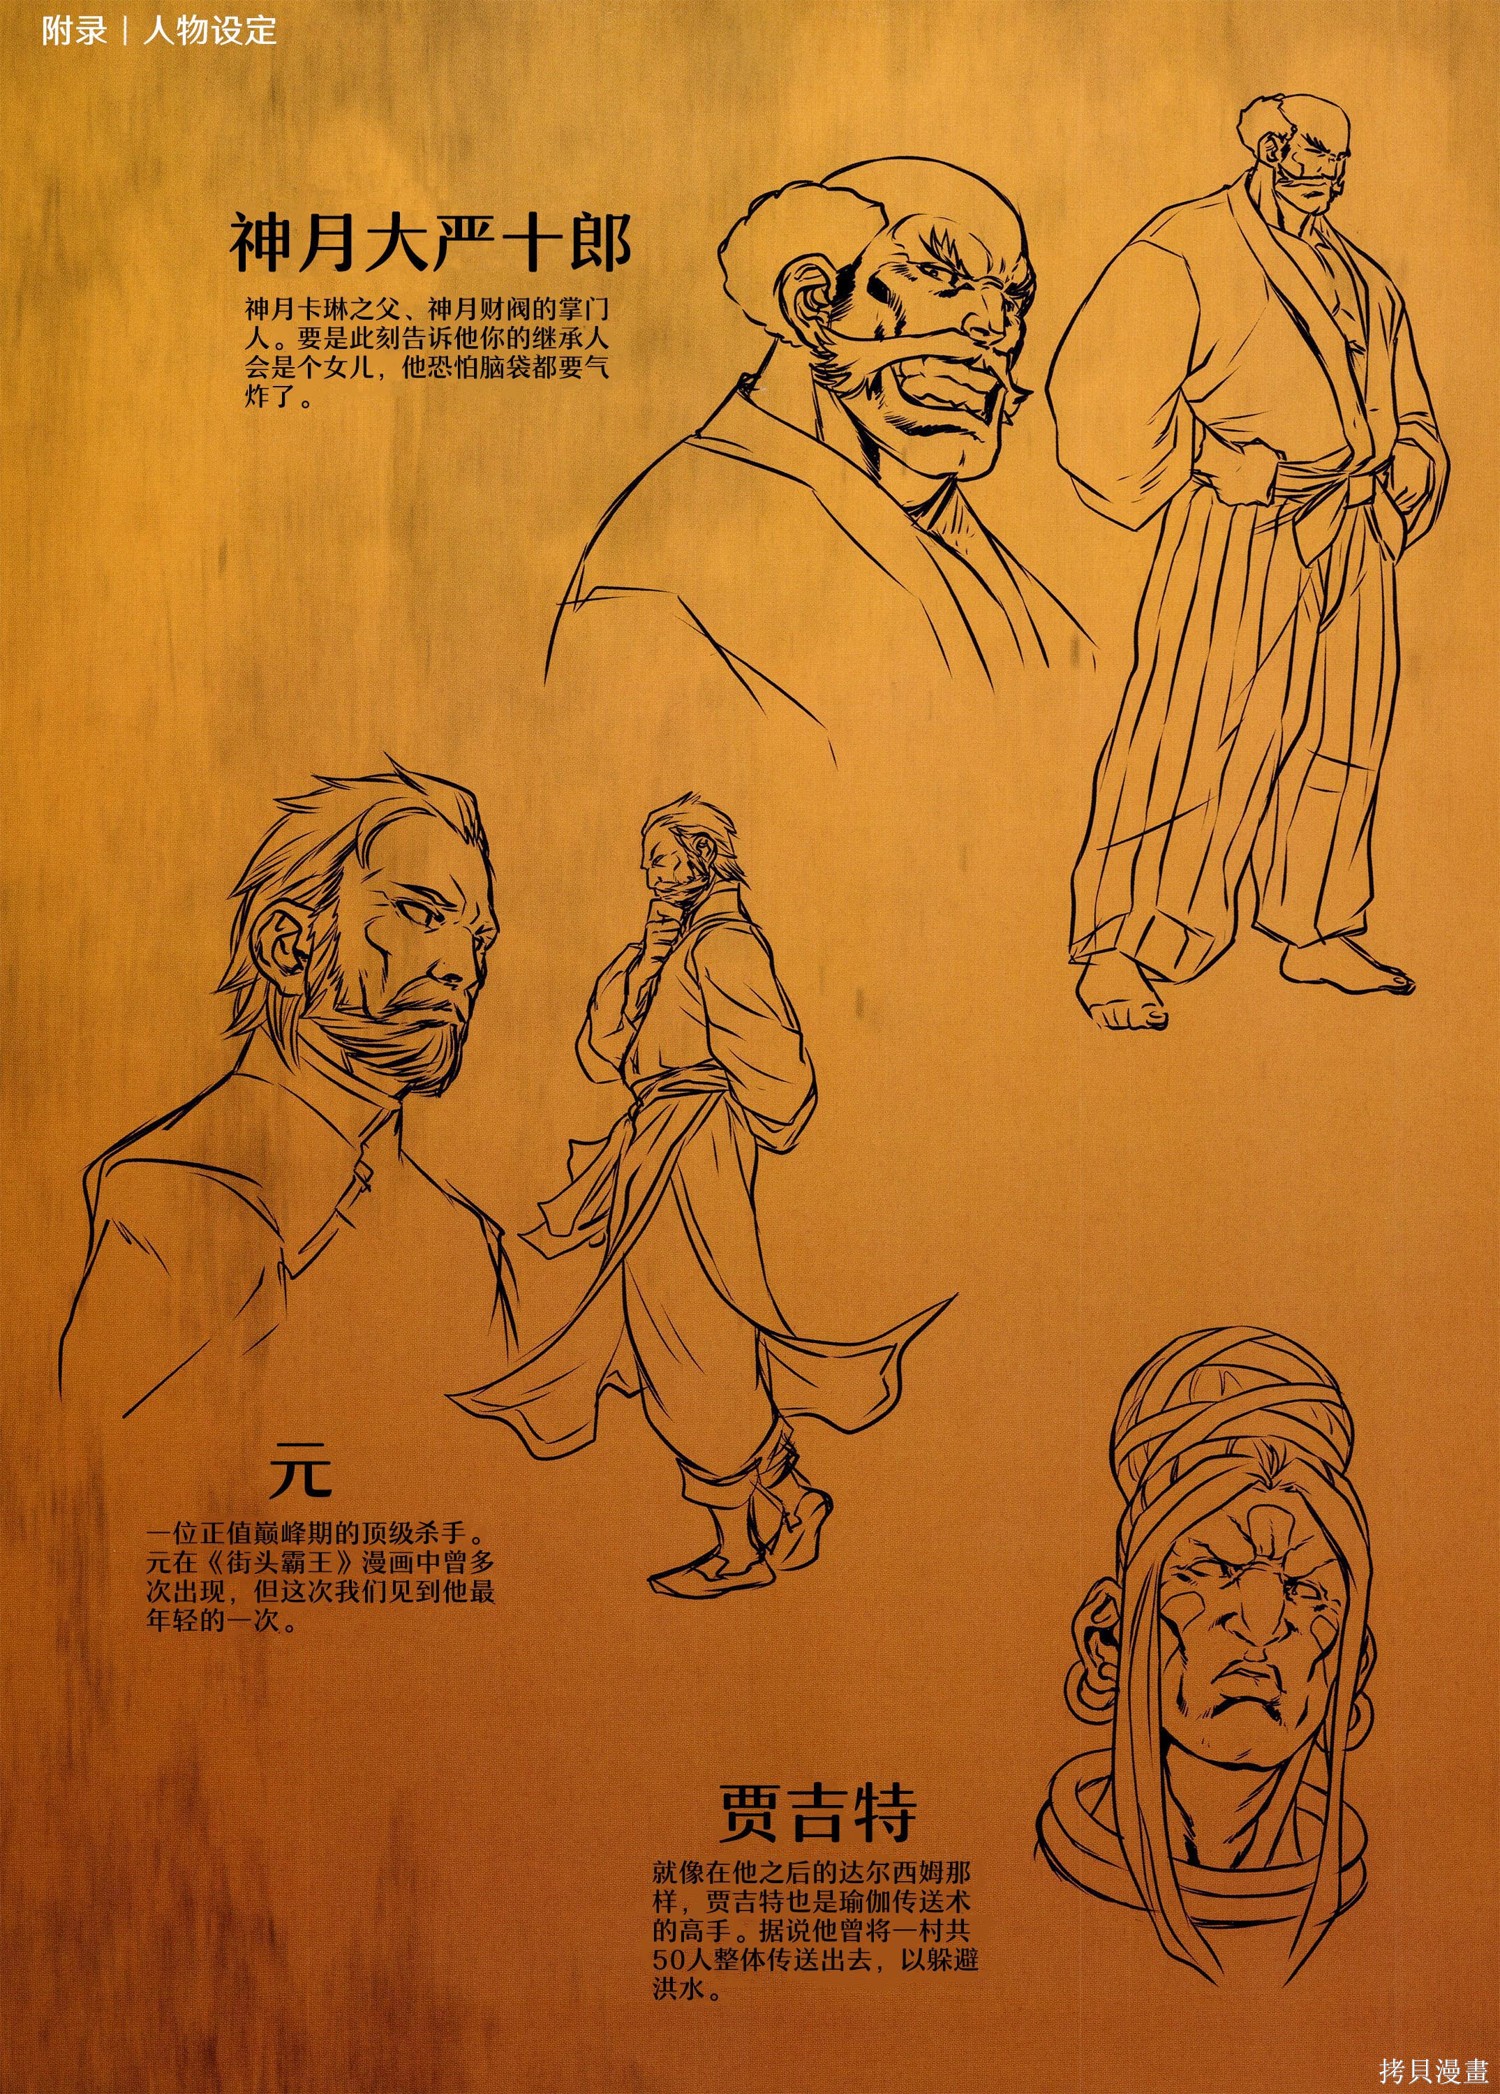 附录｜人物设定
神月大严十郎
神月卡琳之父、神月财阀的掌门
人。要是此刻告诉他你的继承人
会是个女儿，他恐怕脑袋都要气
炸了。
元
一位正值巅峰期的顶级杀手。
元在《街头霸王》漫画中曾多
次出现，但这次我们见到他最
年轻的一次。
贾吉特
就像在他之后的达尔西姆那
样，贾吉特也是瑜伽传送术
的高手。据说他曾将一村共
50人整体传送出去，以躲避
洪水。
拷貝漫畫